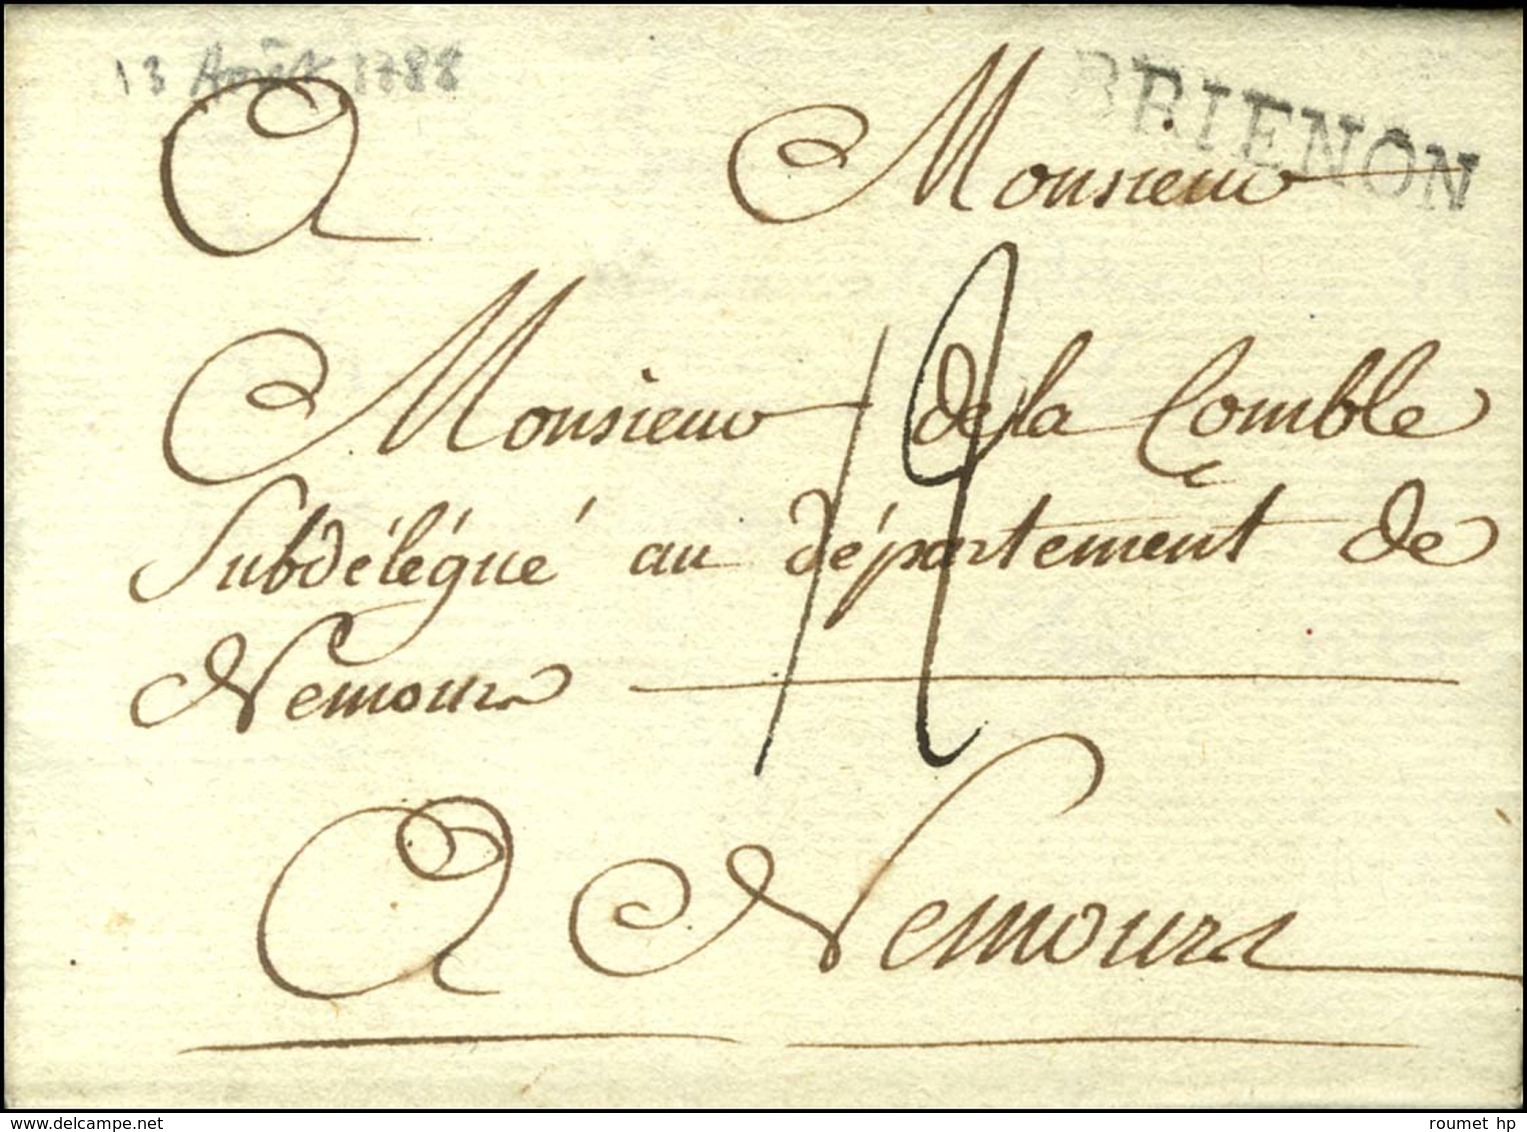 13 Août 1788
BRIENON
A Monsieur
Monsieur de la Comble
Subdélégué au département de
Nemours
12
A Nemours
delcampe.net
roumet hp